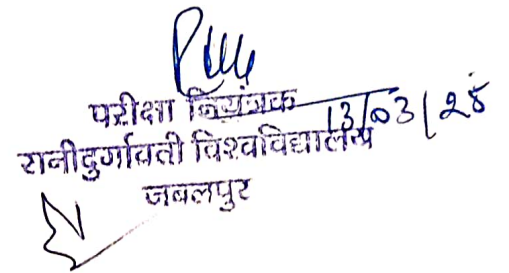 परीक्षा नियंत्रक
13/03/25
रानीदुर्गावती विश्वविद्यालय
जबलपुर